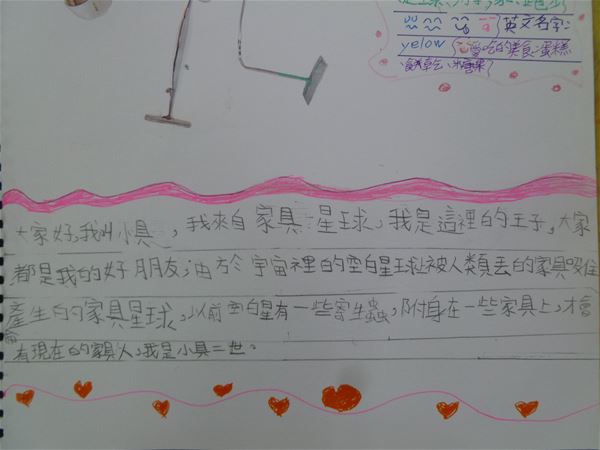 英文名字:
yelow 愛吃的美食:蛋糕
餅乾、冰糖果
大家好,我叫小具,我來自家具星球,我是這裡的王子,大家
都是我的好朋友,由於宇宙裡的空白星球被人類丟的家具吸住
產生的家具星球,以前空白星有一些寄生蟲,附身在一些家具上,才會
有現在的家具人,我是小具二世。